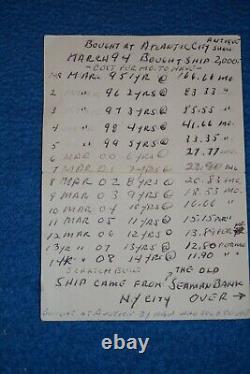 BOUGHT AT ATLANTIC CITY ANTIQUE SHOW
MARCH 94 BOUGHT SHIP 2,000.
-COST FOR MO. TO HAVE-
MAR 95 1YR @ 166.66 MO
2 " 96 2YRS @ 83.33 "
3 " 97 3YRS @ 55.55 "
4 " 98 4YRS @ 41.66 MO
5 " 99 5YRS @ 33.35 "
6 MAR 00 6YRS @ 27.77
7 MAR 01 7YRS @ MO
8 MAR 02 8YRS @ MO
9 MAR 03 9YRS @ 18.53 MO.
10 MAR 04 10YRS @ 16.66 "
11 MAR 05 11YRS @ 15.15
12 MAR 06 12YRS @ 13.89
13YR " 07 13YRS @ 12.80 PER MO
14YR " 08 14YRS @ 11.90 "
SCRATCH BUILT
SHIP CAME FROM THE OLD SEAMAN BANK
N.Y CITY OVER →